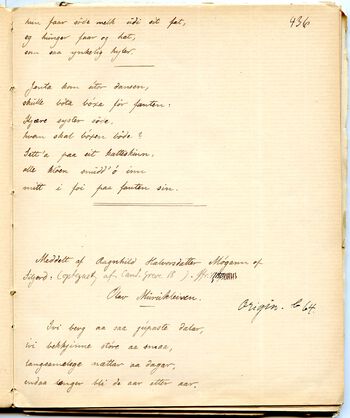 936
hun faar söde melk udi eit fat,
eg hunger faar og hat,
som saa ynkelig hyler.
Jenta kom utor dansen,
skulle bota boxa for fanten:
Kjære syster söre,
hvem skal boxen böde?
Sett'a paa eit katteskinn,
alle klöen smidd'ó inn
mitt i foi paa fanten sin.
Meddelt af Ragnhild Halvorsdatter Mogann af
Siljord: (optegnet af Cand. Greve 18 ). Afr.
Olav Minrikleiven.
Origin. C 64.
Ivi berg aa saa jupaste dalar,
ivi bekkjinne store aa smaa,
langsamelege nættar aa dagar,
endaa lenger bli de aar etter aar.